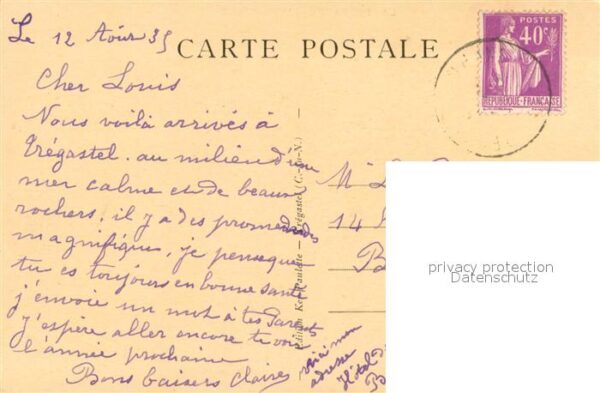 Le 12 Août 35
CARTE POSTALE
POSTES
40c
RÉPUBLIQUE FRANÇAISE
Cher Louis
Nous voilà arrivés à
Trégastel. au milieu d'une
mer calme et de beaux
rochers, il y a des promenades
magnifique, je pense que
tu es toujours en bonne santé
j'envoie un mot à tes Parents
j'espère aller encore te voir
l'année prochaine
Bons baisers Claire
voici mon
adresse
Hôtel
Edition Paulette — Trégastel (C.-du-N.)
M
14
privacy protection
Datenschutz